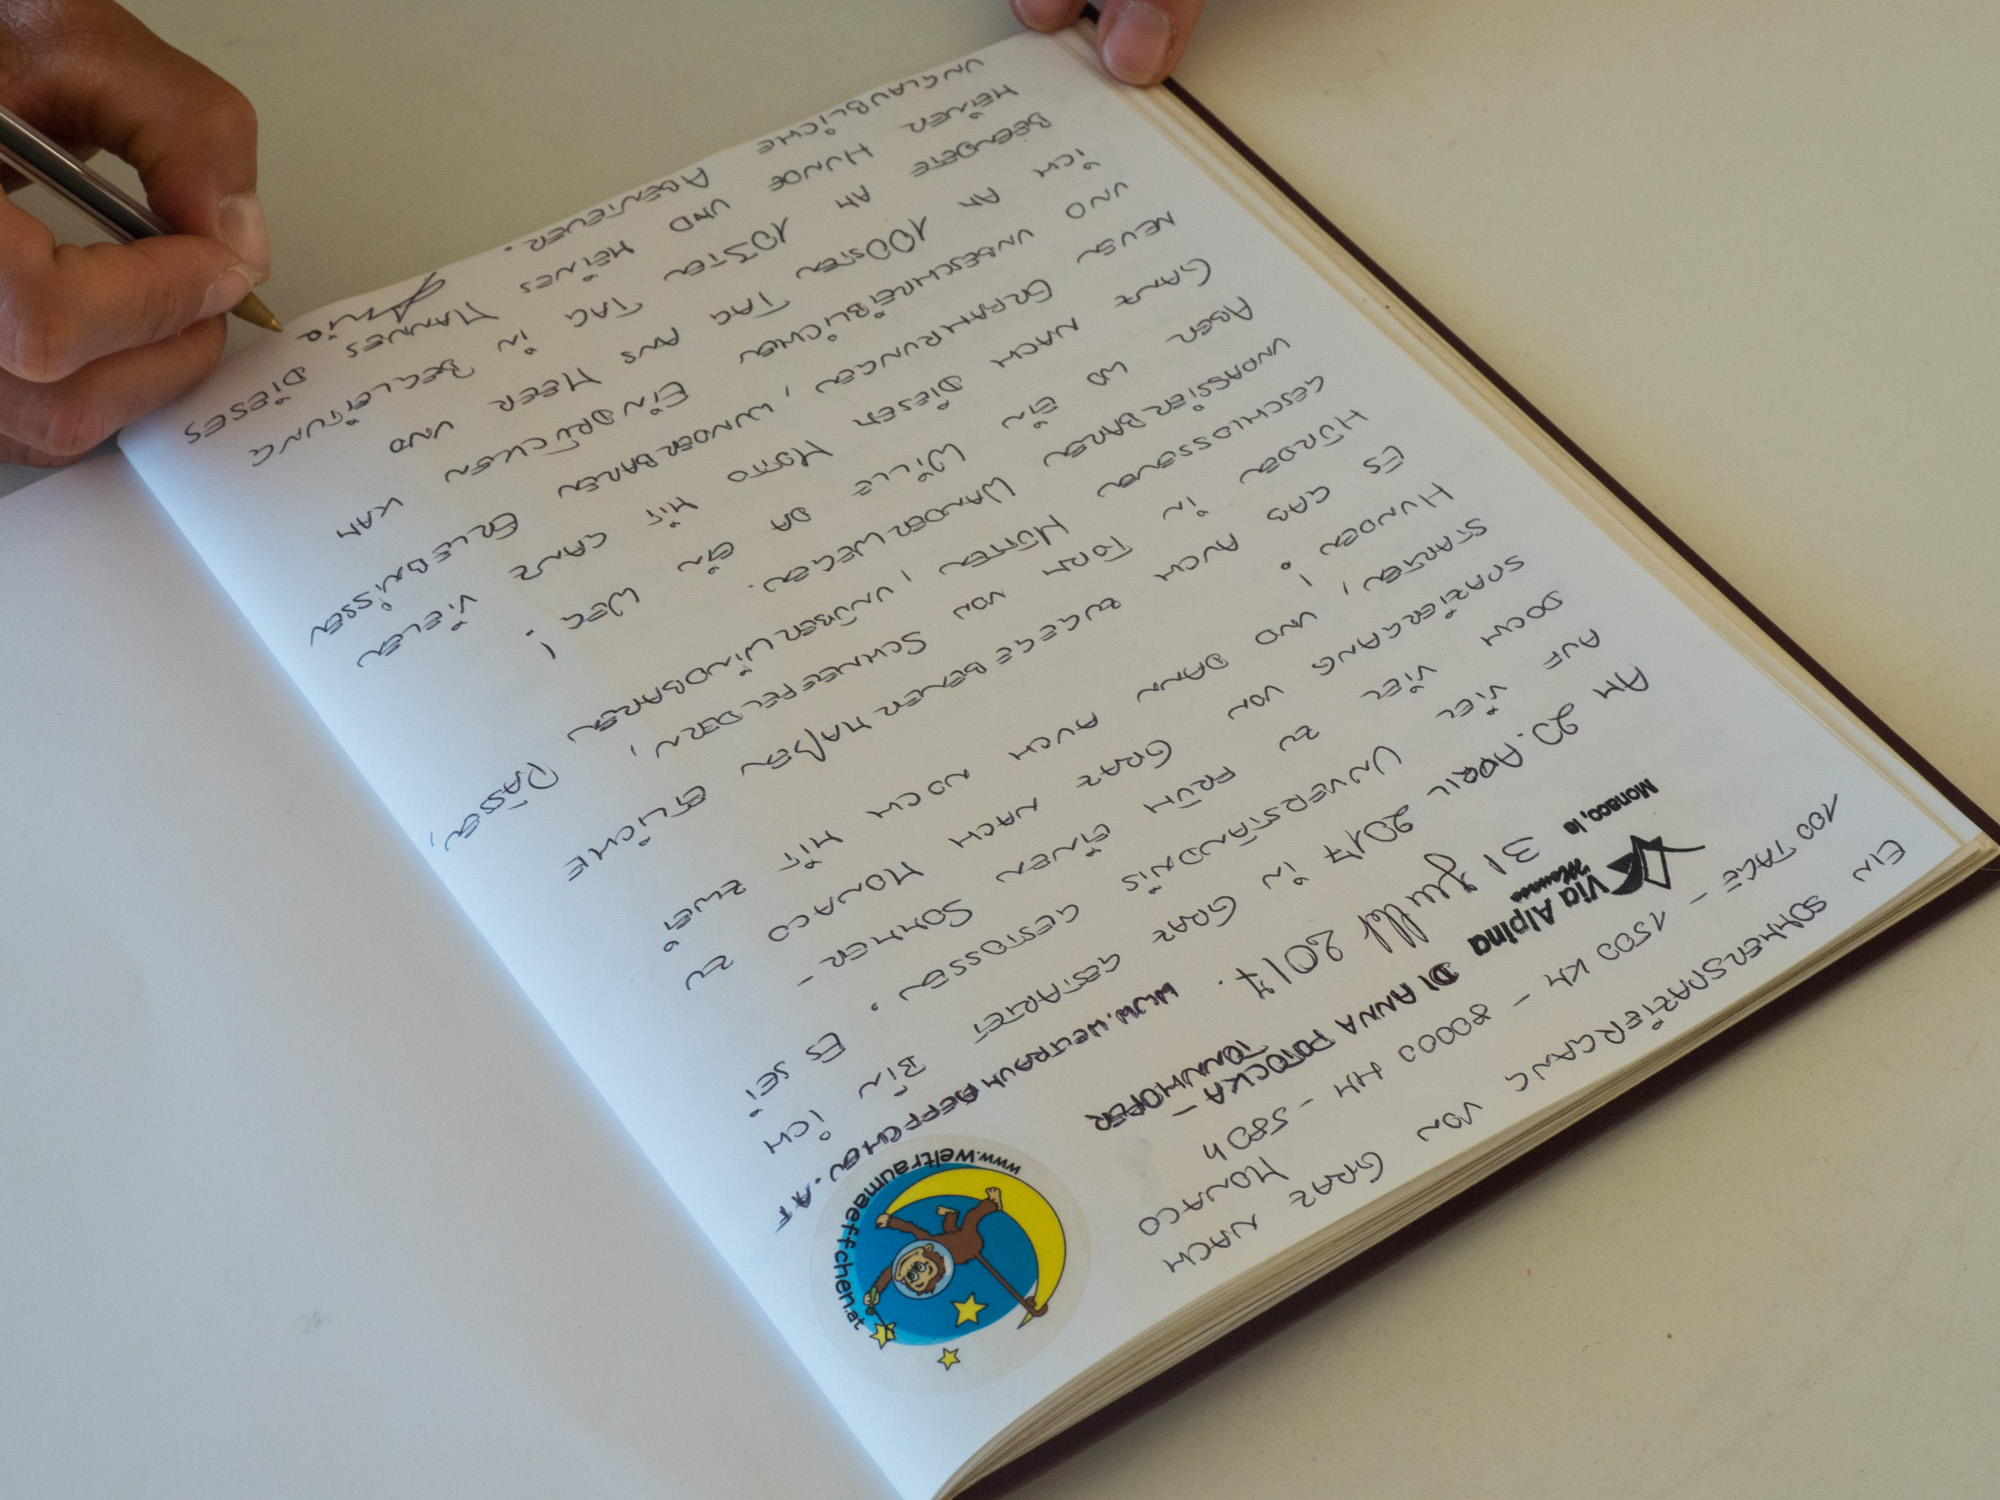 EIN SOMMERSPAZIERGANG VON GRAZ NACH
MONACO
100 TAGE – 1500 KM – 80000 HM – 580 H
Via Alpina
Monaco
DI ANNA POTOCKA –
TONNHOFER
Monaco, le 31 Juillet 2017.
WWW.WELTRAUMAEFFCHEN.AT
www.weltraumaeffchen.at
AM 20. APRIL 2017 IN GRAZ GESTARTET BIN ICH
AUF VIEL UNVERSTÄNDNIS GESTOSSEN. ES SEI
DOCH VIEL ZU FRÜH EINEN SOMMER-
SPAZIERGANG VON GRAZ NACH MONACO ZU
STARTEN, UND DANN AUCH NOCH MIT ZWEI
HUNDEN!
ES GAB AUCH ZUGEGEBENERMAßEN ETLICHE
HÜRDEN IN FORM VON SCHNEEFELDERN,
GESCHLOSSENEN HÜTTEN, UNÜBERWINDBAREN PÄSSEN,
UNPASSIERBAREN WANDERWEGEN.
ABER WO EIN WILLE DA EIN WEG!
GANZ NACH DIESEM MOTTO MIT GANZ VIELEN
NEUEN ERFAHRUNGEN, WUNDERBAREN ERLEBNISSEN
UND UNBESCHREIBLICHEN EINDRÜCKEN KAM
ICH AM 100STEN TAG ANS MEER UND
BEENDETE AM 103TEN TAG IN BEGLEITUNG
MEINER HUNDE UND MEINES MANNES DIESES
UNGLAUBLICHE ABENTEUER.